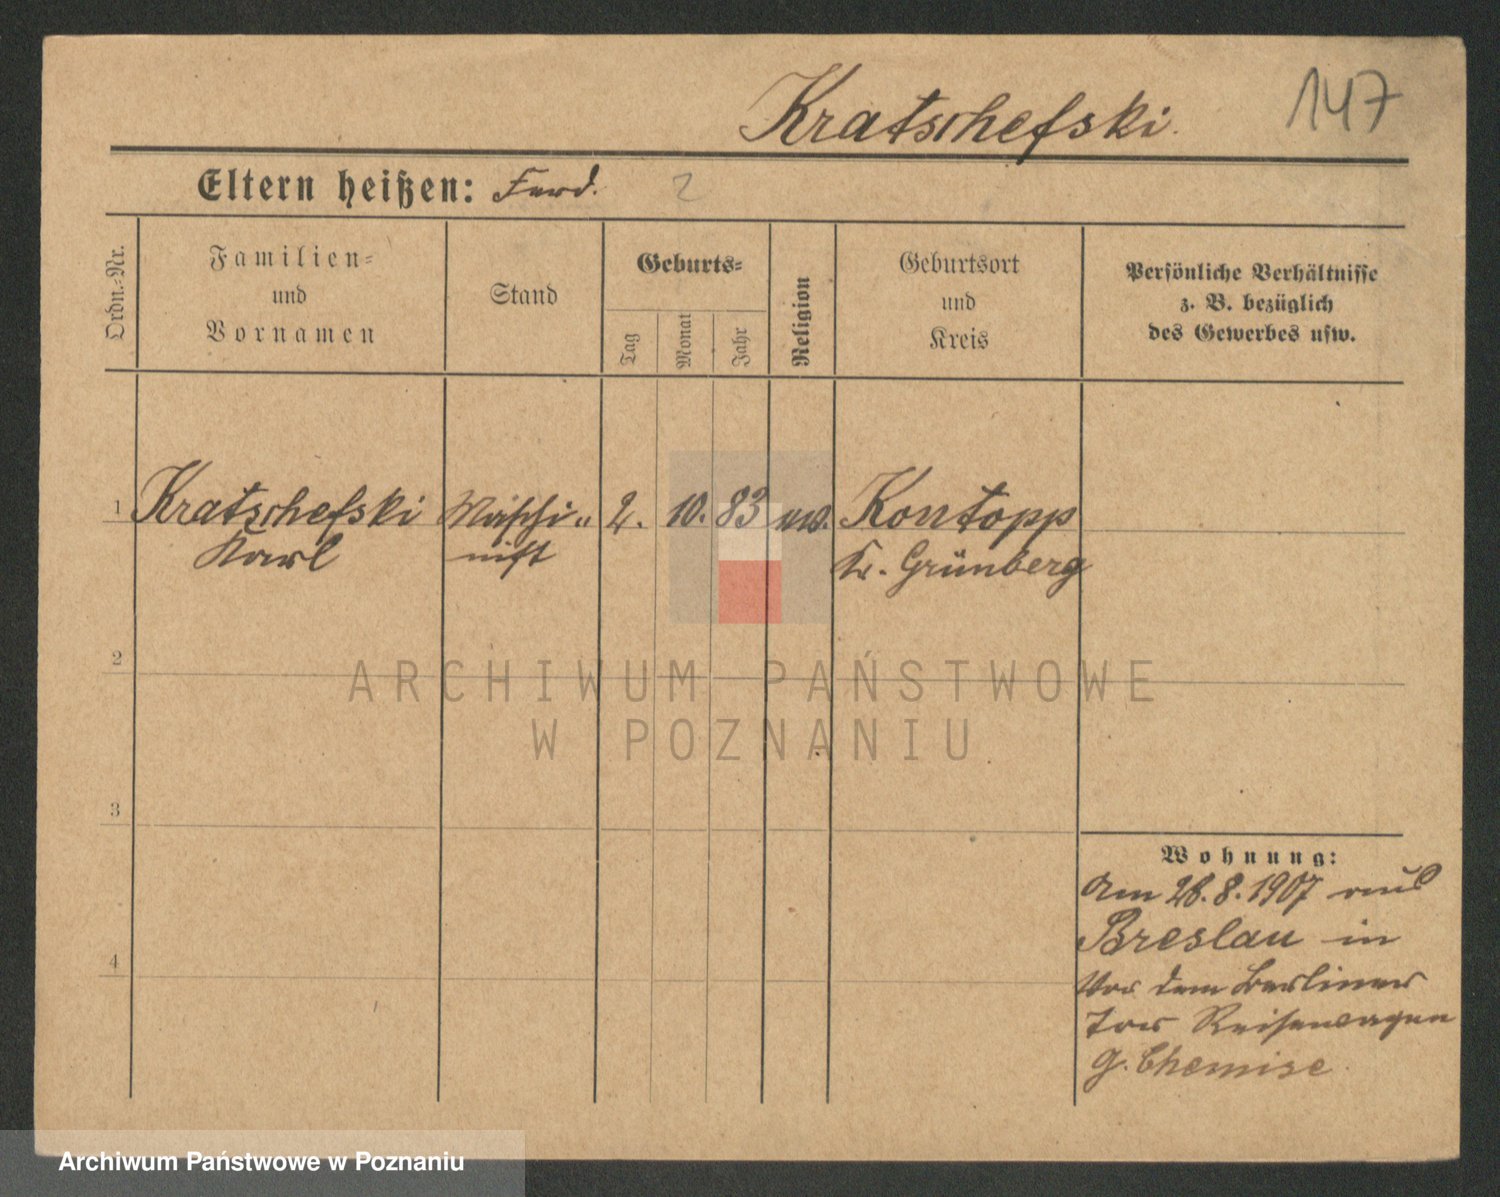 Kratschefski.
147
Eltern heißen: Ferd.
2
Ordn.-Nr.
Familien-
und
Vornamen
Stand
Geburts-
Tag
Monat
Jahr
Religion
Geburtsort
und
Kreis
Persönliche Verhältnisse
z. B. bezüglich
des Gewerbes usw.
1 Kratschefski Maschi- 2. 10. 83 ev. Kontopp
Karl nist Kr. Grünberg
2
3
4
Wohnung:
Am 28.8.1907 aus
Breslau in
Vor dem Berliner
Tor Reisewagen
G. Chemise
ARCHIWUM PAŃSTWOWE
W POZNANIU
Archiwum Państwowe w Poznaniu